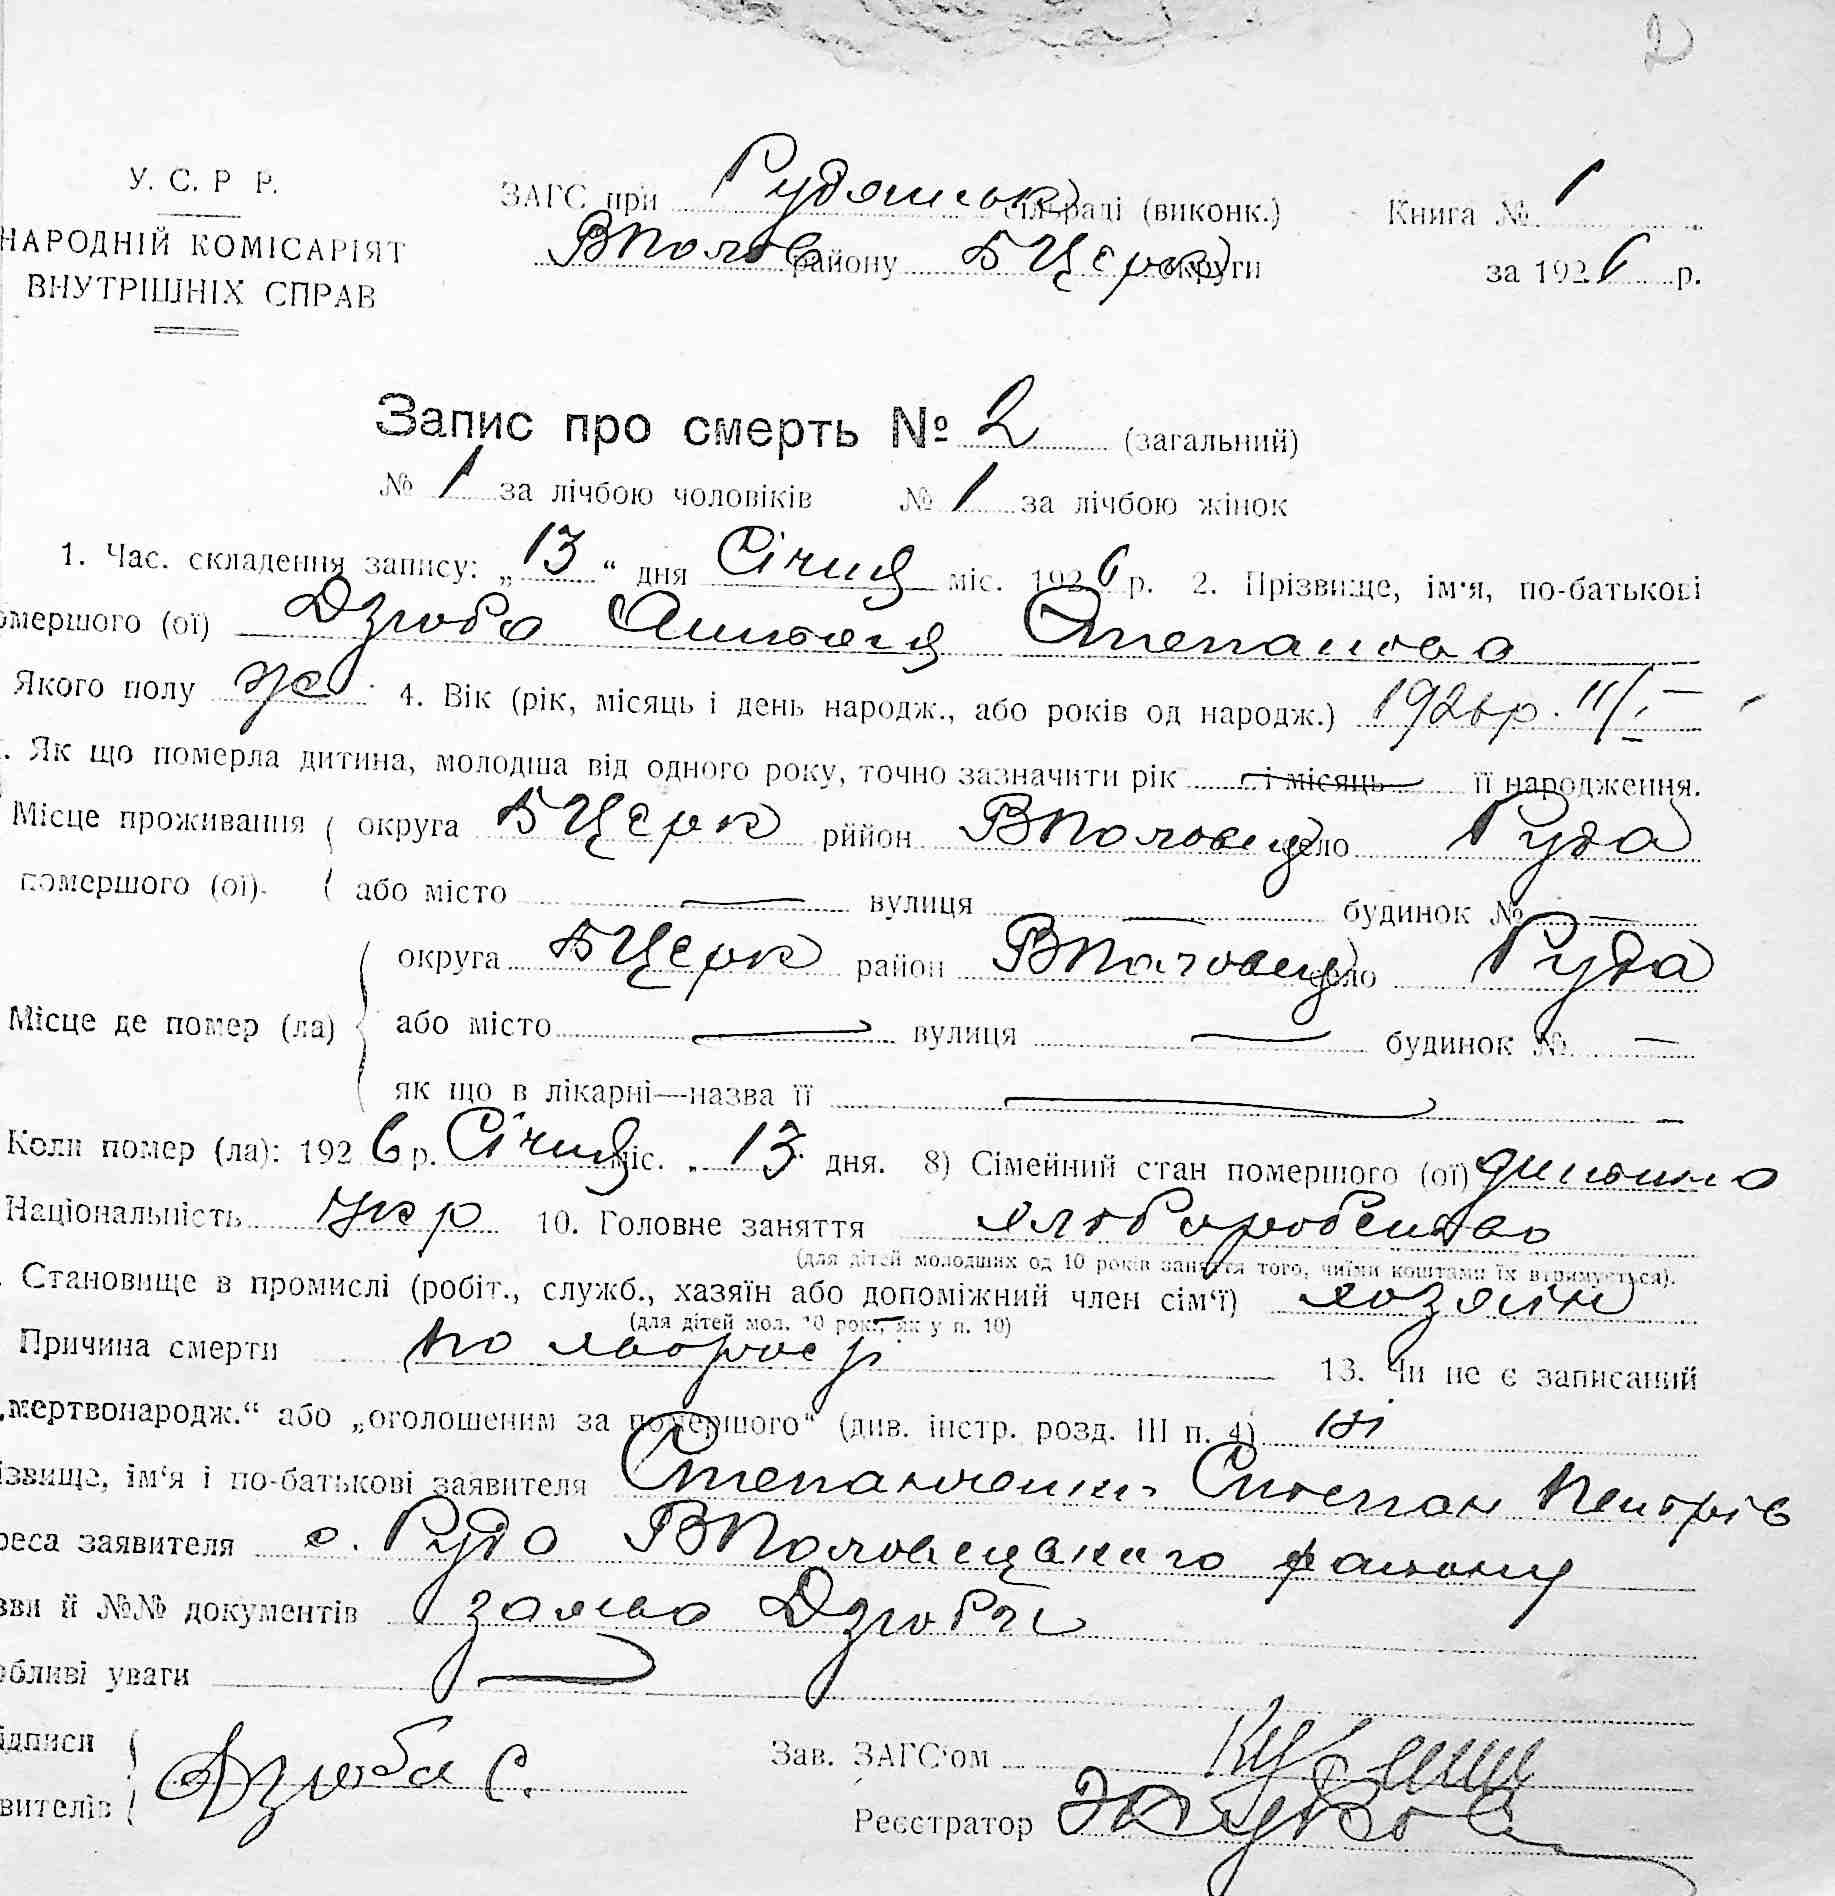 2
У. С. Р Р.
НАРОДНІЙ КОМІСАРІЯТ
ВНУТРІШНІХ СПРАВ
ЗАГС при Рудянськ сільраді (виконк.)
ВПолов району БЦерк округи
Книга № 1
за 1926 р.
Запис про смерть № 2 (загальний)
№ 1 за лічбою чоловіків № 1 за лічбою жінок
1. Час. складення запису: „13“ дня Січня міс. 1926 р. 2. Прізвище, ім'я, по-батькові
омершого (ої) Дзюба Степанова
Якого полу ж 4. Вік (рік, місяць і день народж., або років од народж.) 1926р. 11/I
. Як що померла дитина, молодша від одного року, точно зазначити рік і місяць її народження.
Місце проживання округа БЦерк рййон ВПоловец село Руда
помершого (ої). або місто — вулиця — будинок № —
округа БЦерк район ВПоловец село Руда
Місце де помер (ла) або місто — вулиця — будинок № —
як що в лікарні—назва її —
Коли помер (ла): 1926 р. Січня міс. 13 дня. 8) Сімейний стан помершого (ої) дитина
Національність Укр 10. Головне заняття хліборобство
(для дітей молодших од 10 років заняття того, чиїми коштами їх втримується).
. Становище в промислі (робіт., служб., хазяїн або допоміжний член сім'ї) хозяїн
(для дітей мол. 10 рокі, як у п. 10)
Причина смерти по хворости 13. Чи не є записаний
„мертвонародж.“ або „оголошеним за помершого“ (див. інстр. розд. III п. 4) ні
ізвище, ім'я і по-батькові заявителя Степан Петрів
реса заявителя с. Руда ВПоловецького району
зви й №№ документів заява Дзюби
обливі уваги —
ідписи Дзюба С. Зав. ЗАГС'ом
вителів Реєстратор